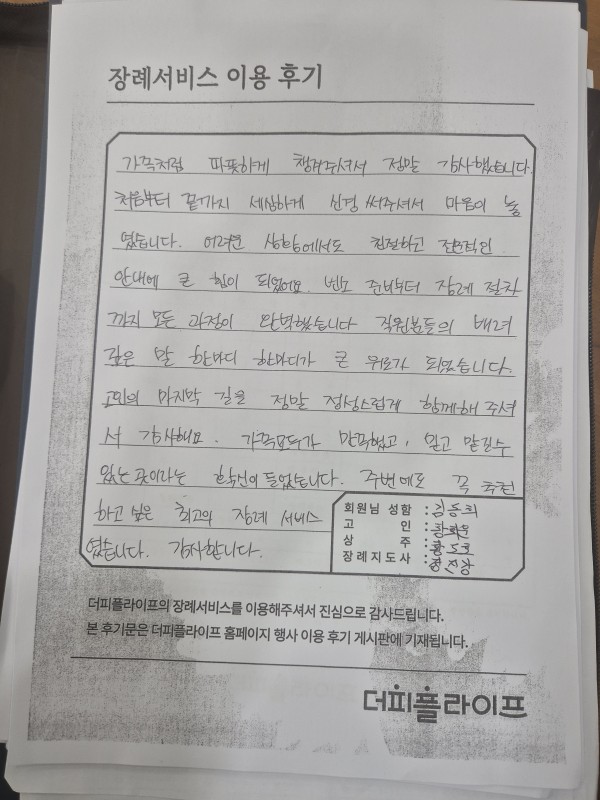 장례서비스 이용 후기
가족처럼 따뜻하게 챙겨주셔서 정말 감사했습니다.
처음부터 끝까지 세심하게 신경 써주셔서 마음이 놓
였습니다. 어려운 상황에서도 친절하고 전문적인
안내에 큰 힘이 되었어요. 빈소 준비부터 장례 절차
까지 모든 과정이 완벽했습니다 직원분들의 배려
깊은 말 한마디 한마디가 큰 위로가 되었습니다.
고인의 마지막 길을 정말 정성스럽게 함께해 주셔
서 감사해요. 가족모두가 만족했고, 믿고 맡길수
있는 곳이라는 확신이 들었습니다. 주변에도 꼭 추천
하고 싶은 최고의 장례 서비스
였습니다. 감사합니다.
회원님 성함 : 김동희
고 인 :
상 주 :
장례지도사 :
더피플라이프의 장례서비스를 이용해주셔서 진심으로 감사드립니다.
본 후기문은 더피플라이프 홈페이지 행사 이용 후기 게시판에 기재됩니다.
더피플라이프